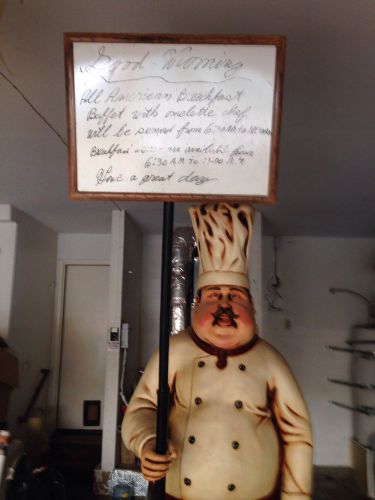 Good-Morning
All American Breakfast
Buffet with omelette chef
will be served from 6:30 A.M. to 10:00 A.M.
Breakfast are available from
6:30 A.M to A.M
Have a great day